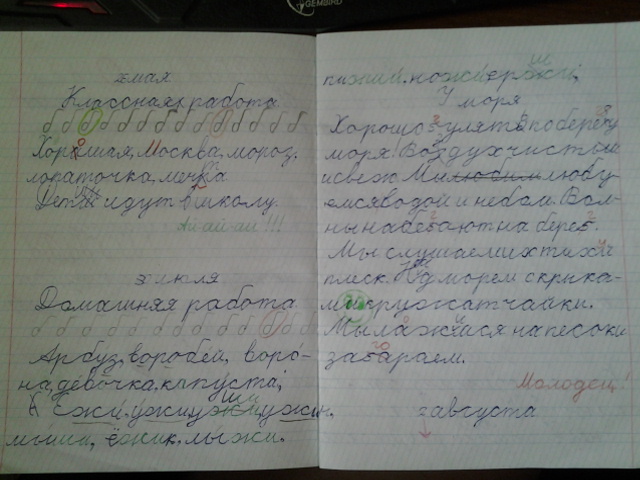 GEMBIRD
2 мая
Классная работа
б б б б б б б б б б б б б б б
Хорошая, Москва, мороз.
лопаточка, мечта
Дети идут в школу.
Ай-ай-ай !!!
3 июля
Домашняя работа
б б б б б б б б б б б б б б б
Арбуз, воробей, воро-
на, девочка, капуста,
Ежи, ужи, ужин.
мыши, ёжик, лыжи.
пижай, ножи, ержи,
У моря
Хорошо гулять по берегу
моря. Воздух чистый
и свеж. Мы любим любу-
емся водой и небом. Вол-
ны набегают на берег.
Мы слушаем их тихий
плеск. Над морем с крика-
ми кружат чайки.
Мы ложимся на песок и
загораем.
Молодец!
2 августа